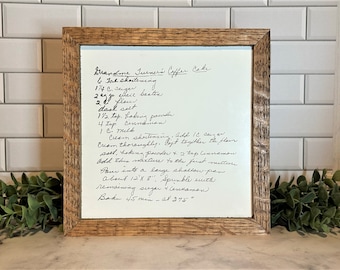 Grandma Turner's Coffee Cake
6 Tbl shortening
1 1/4 C sugar
2 eggs well beaten
2 C flour
dash salt
1 1/2 Tsp baking powder
4 Tsp Cinnamon
1 C milk
Cream shortening. Add 1 C sugar
Cream thoroughly. Sift together the flour
salt, baking powder & 3 tsp cinnamon
Add this mixture to the first mixture
Pour into a large shallow pan
about 12 x 8. Sprinkle with
remaining sugar & cinnamon
Bake 45 min - at 375°